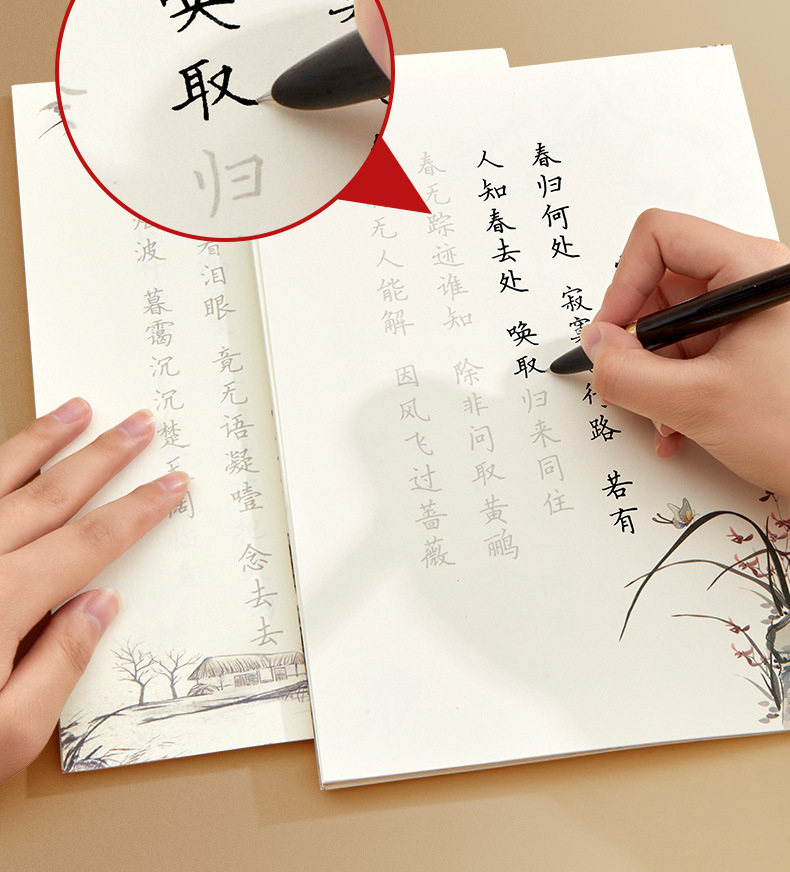 唤取归
春归何处 寂寞行路 若有
人知春去处 唤取归来同住
春无踪迹谁知 除非问取黄鹂
无人能解 因风飞过蔷薇
看泪眼 竟无语凝噎 念去去
烟波 暮霭沉沉楚天阔